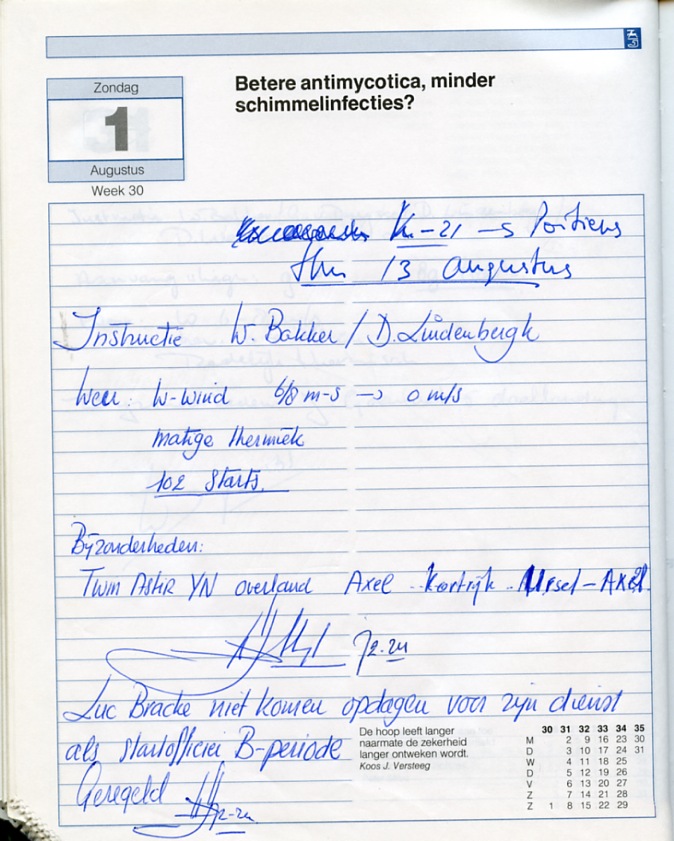 Zondag
1
Augustus
Week 30
Betere antimycotica, minder
schimmelinfecties?
K-21 → Poitiers
t/m 13 augustus
Instructie W. Bakker / D. Lindenbergh
Weer: W-wind 6/8 m-s → 0 m/s
matige thermiek
102 starts.
Bijzonderheden:
Twin Astir YN overland Axel - Kortrijk - Ursel - Axel.
Luc Bracke niet komen opdagen voor zijn dienst
als startofficier B-periode
Geregeld
De hoop leeft langer
naarmate de zekerheid
langer ontweken wordt.
Koos J. Versteeg
30 31 32 33 34 35
M 2 9 16 23 30
D 3 10 17 24 31
W 4 11 18 25
D 5 12 19 26
V 6 13 20 27
Z 7 14 21 28
Z 1 8 15 22 29